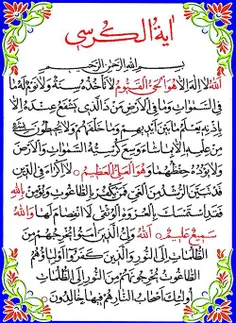 اية الكرسي
بِسْمِ اللهِ الرَّحْمٰنِ الرَّحِيمِ
اَللهُ لَا اِلٰهَ اِلَّا هُوَ الْحَيُّ الْقَيُّومُ لَا تَأْخُذُهُ سِنَةٌ وَلَا نَوْمٌ لَهُ مَا
فِي السَّمٰوَاتِ وَمَا فِي الْاَرْضِ مَنْ ذَا الَّذِي يَشْفَعُ عِنْدَهُ اِلَّا
بِاِذْنِهِ يَعْلَمُ مَا بَيْنَ اَيْدِيهِمْ وَمَا خَلْفَهُمْ وَلَا يُحِيطُونَ بِشَيْءٍ
مِنْ عِلْمِهِ اِلَّا بِمَا شَاءَ وَسِعَ كُرْسِيُّهُ السَّمٰوَاتِ وَالْاَرْضَ
وَلَا يَؤُدُهُ حِفْظُهُمَا وَهُوَ الْعَلِيُّ الْعَظِيمُ لَا اِكْرَاهَ فِي الدِّينِ
قَدْ تَبَيَّنَ الرُّشْدُ مِنَ الْغَيِّ فَمَنْ يَكْفُرْ بِالطَّاغُوتِ وَيُؤْمِنْ بِاللهِ
فَقَدِ اسْتَمْسَكَ بِالْعُرْوَةِ الْوُثْقٰى لَا انْفِصَامَ لَهَا وَاللهُ
سَمِيعٌ عَلِيمٌ اَللهُ وَلِيُّ الَّذِينَ اٰمَنُوا يُخْرِجُهُمْ مِنَ
الظُّلُمَاتِ اِلَى النُّورِ وَالَّذِينَ كَفَرُوا اَوْلِيَاؤُهُمُ
الطَّاغُوتُ يُخْرِجُونَهُمْ مِنَ النُّورِ اِلَى الظُّلُمَاتِ
اُولٰئِكَ اَصْحَابُ النَّارِ هُمْ فِيهَا خَالِدُونَ